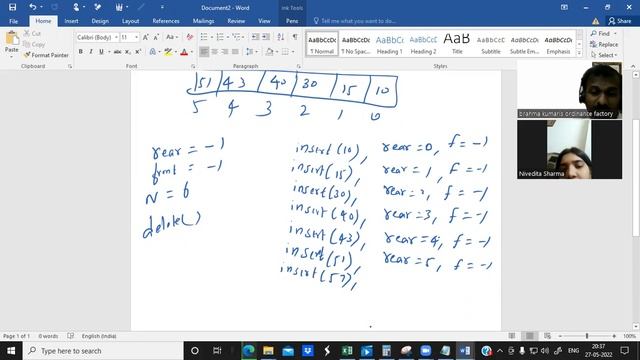 Document2 - Word
Ink Tools
File Home Insert Draw Design Layout References Mailings Review View Help Pen Tell me what you want to do
Calibri (Body) 11
AaBbCcDc AaBbCcDc AaBbCc AaBbCc AaB AaBbCcD AaBbCcDc AaBbCcDc
¶ Normal ¶ No Spac... Heading 1 Heading 2 Title Subtitle Subtle Em... Emphasis
Clipboard Font Paragraph Styles
51 43 40 30 15 10
5 4 3 2 1 0
rear = -1
front = -1
N = 6
delete()
insert(10), rear=0, f=-1
insert(15), rear=1, f=-1
insert(30), rear=2, f=-1
insert(40), rear=3, f=-1
insert(43), rear=4, f=-1
insert(51), rear=5, f=-1
insert(57),
brahma kumaris ordinance factory
Nivedita Sharma
Page 1 of 1 0 words English (India)
Type here to search
ENG
20:37
27-05-2022